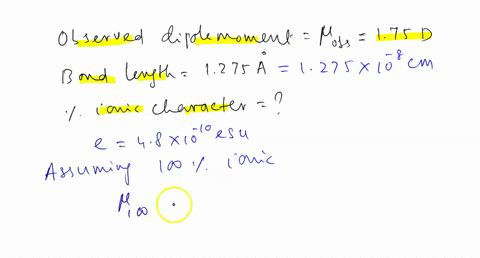 Observed dipole moment = μoss = 1.75 D
Bond length = 1.275 Å = 1.275 × 10⁻⁸ cm
% ionic character = ?
e = 4.8 × 10⁻¹⁰ esu
Assuming 100 % ionic
μ₁₀₀